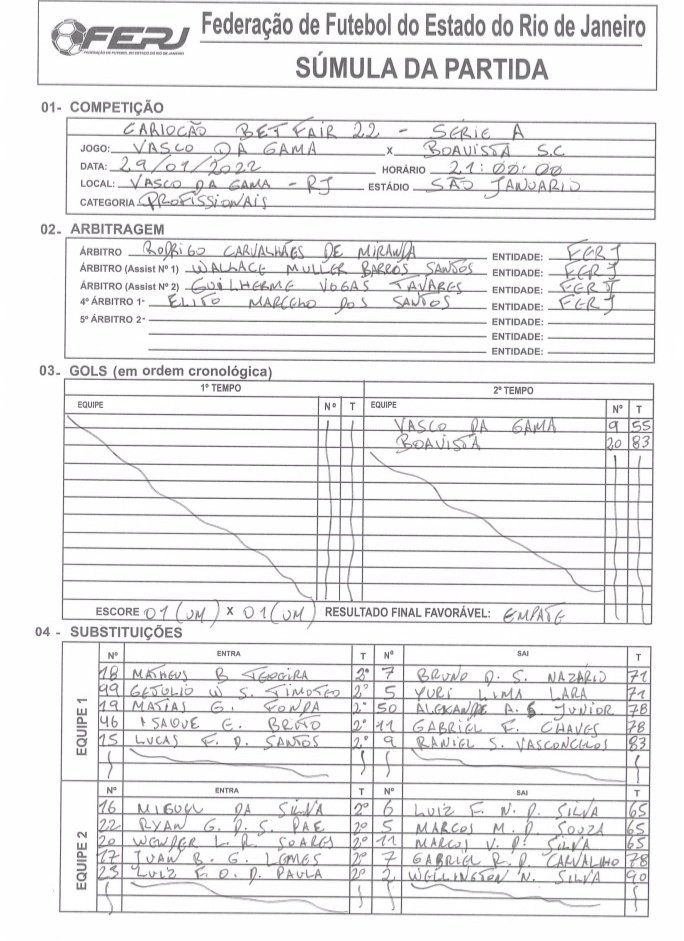 FERJ
FEDERAÇÃO DE FUTEBOL DO ESTADO DO RIO DE JANEIRO
Federação de Futebol do Estado do Rio de Janeiro
SÚMULA DA PARTIDA
01- COMPETIÇÃO
CARIOCÃO BETFAIR 22 - SÉRIE A
JOGO: VASCO DA GAMA X BOAVISTA S.C
DATA: 29/01/2022 HORÁRIO 21:00:00
LOCAL: VASCO DA GAMA - RJ ESTÁDIO SÃO JANUARIO
CATEGORIA PROFISSIONAIS
02- ARBITRAGEM
ÁRBITRO RODRIGO CARVALHÃES DE MIRANDA ENTIDADE: FERJ
ÁRBITRO (Assist Nº 1) WALLACE MULLER BARROS SANTOS ENTIDADE: FERJ
ÁRBITRO (Assist Nº 2) GUILHERME VOGAS TAVARES ENTIDADE: FERJ
4º ÁRBITRO 1- ELITO MARCELHO DOS SANTOS ENTIDADE: FERJ
5º ÁRBITRO 2- ENTIDADE:
ENTIDADE:
ENTIDADE:
03- GOLS (em ordem cronológica)
1º TEMPO 2º TEMPO
EQUIPE Nº T EQUIPE Nº T
VASCO DA GAMA 9 55
BOAVISTA 20 83
ESCORE 01 (UM) X 01 (UM) RESULTADO FINAL FAVORÁVEL: EMPATE
04 - SUBSTITUIÇÕES
EQUIPE 1
Nº ENTRA T Nº SAI T
18 MATHEUS B TEXEIRA 2º 7 BRUNO D. S. NAZÁRIO 71
99 GETULIO W S. TIMOTEO 2º 5 YURI LIMA LARA 71
19 MATIAS G. 2º 50 ALEXANDRE A. S JUNIOR 78
46 ISAQUE E. BRITO 2º 11 GABRIEL F. CHAVES 78
15 LUCAS F. D. SANTOS 2º 9 RANIEL S. VASCONCELOS 83
EQUIPE 2
Nº ENTRA T Nº SAI T
16 MIGUEL DA SILVA 2º 6 LUIZ F. N. D. SILVA 65
22 RYAN G. D. S. PAE 2º 5 MARCOS M. D. SOUZA 65
20 WENDER L. R. SOARES 2º 11 MARCOS V. D. SILVA 65
17 JUAN B. G. LEMES 2º 7 GABRIEL R. D. CARVALHO 78
23 LUIZ F. O. D. PAULA 2º 2 WELLINGTON N. SILVA 90